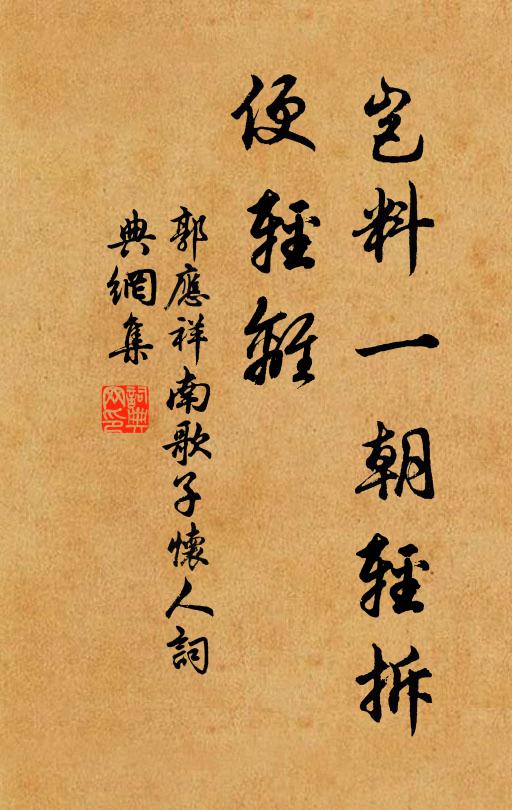 豈料一朝輕拆
便輕離
郭應祥南歌子懷人詞
典網集
詞典網印